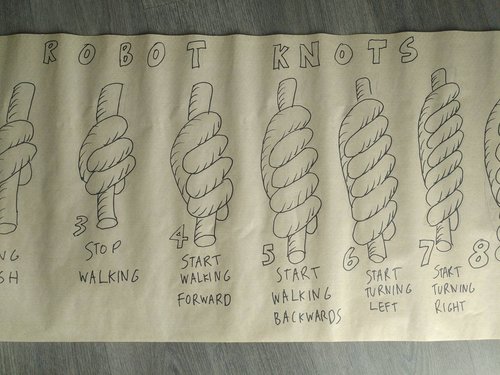 ROBOT KNOTS
NG
SH
3
STOP
WALKING
4
START
WALKING
FORWARD
5
START
WALKING
BACKWARDS
6
START
TURNING
LEFT
7
START
TURNING
RIGHT
8